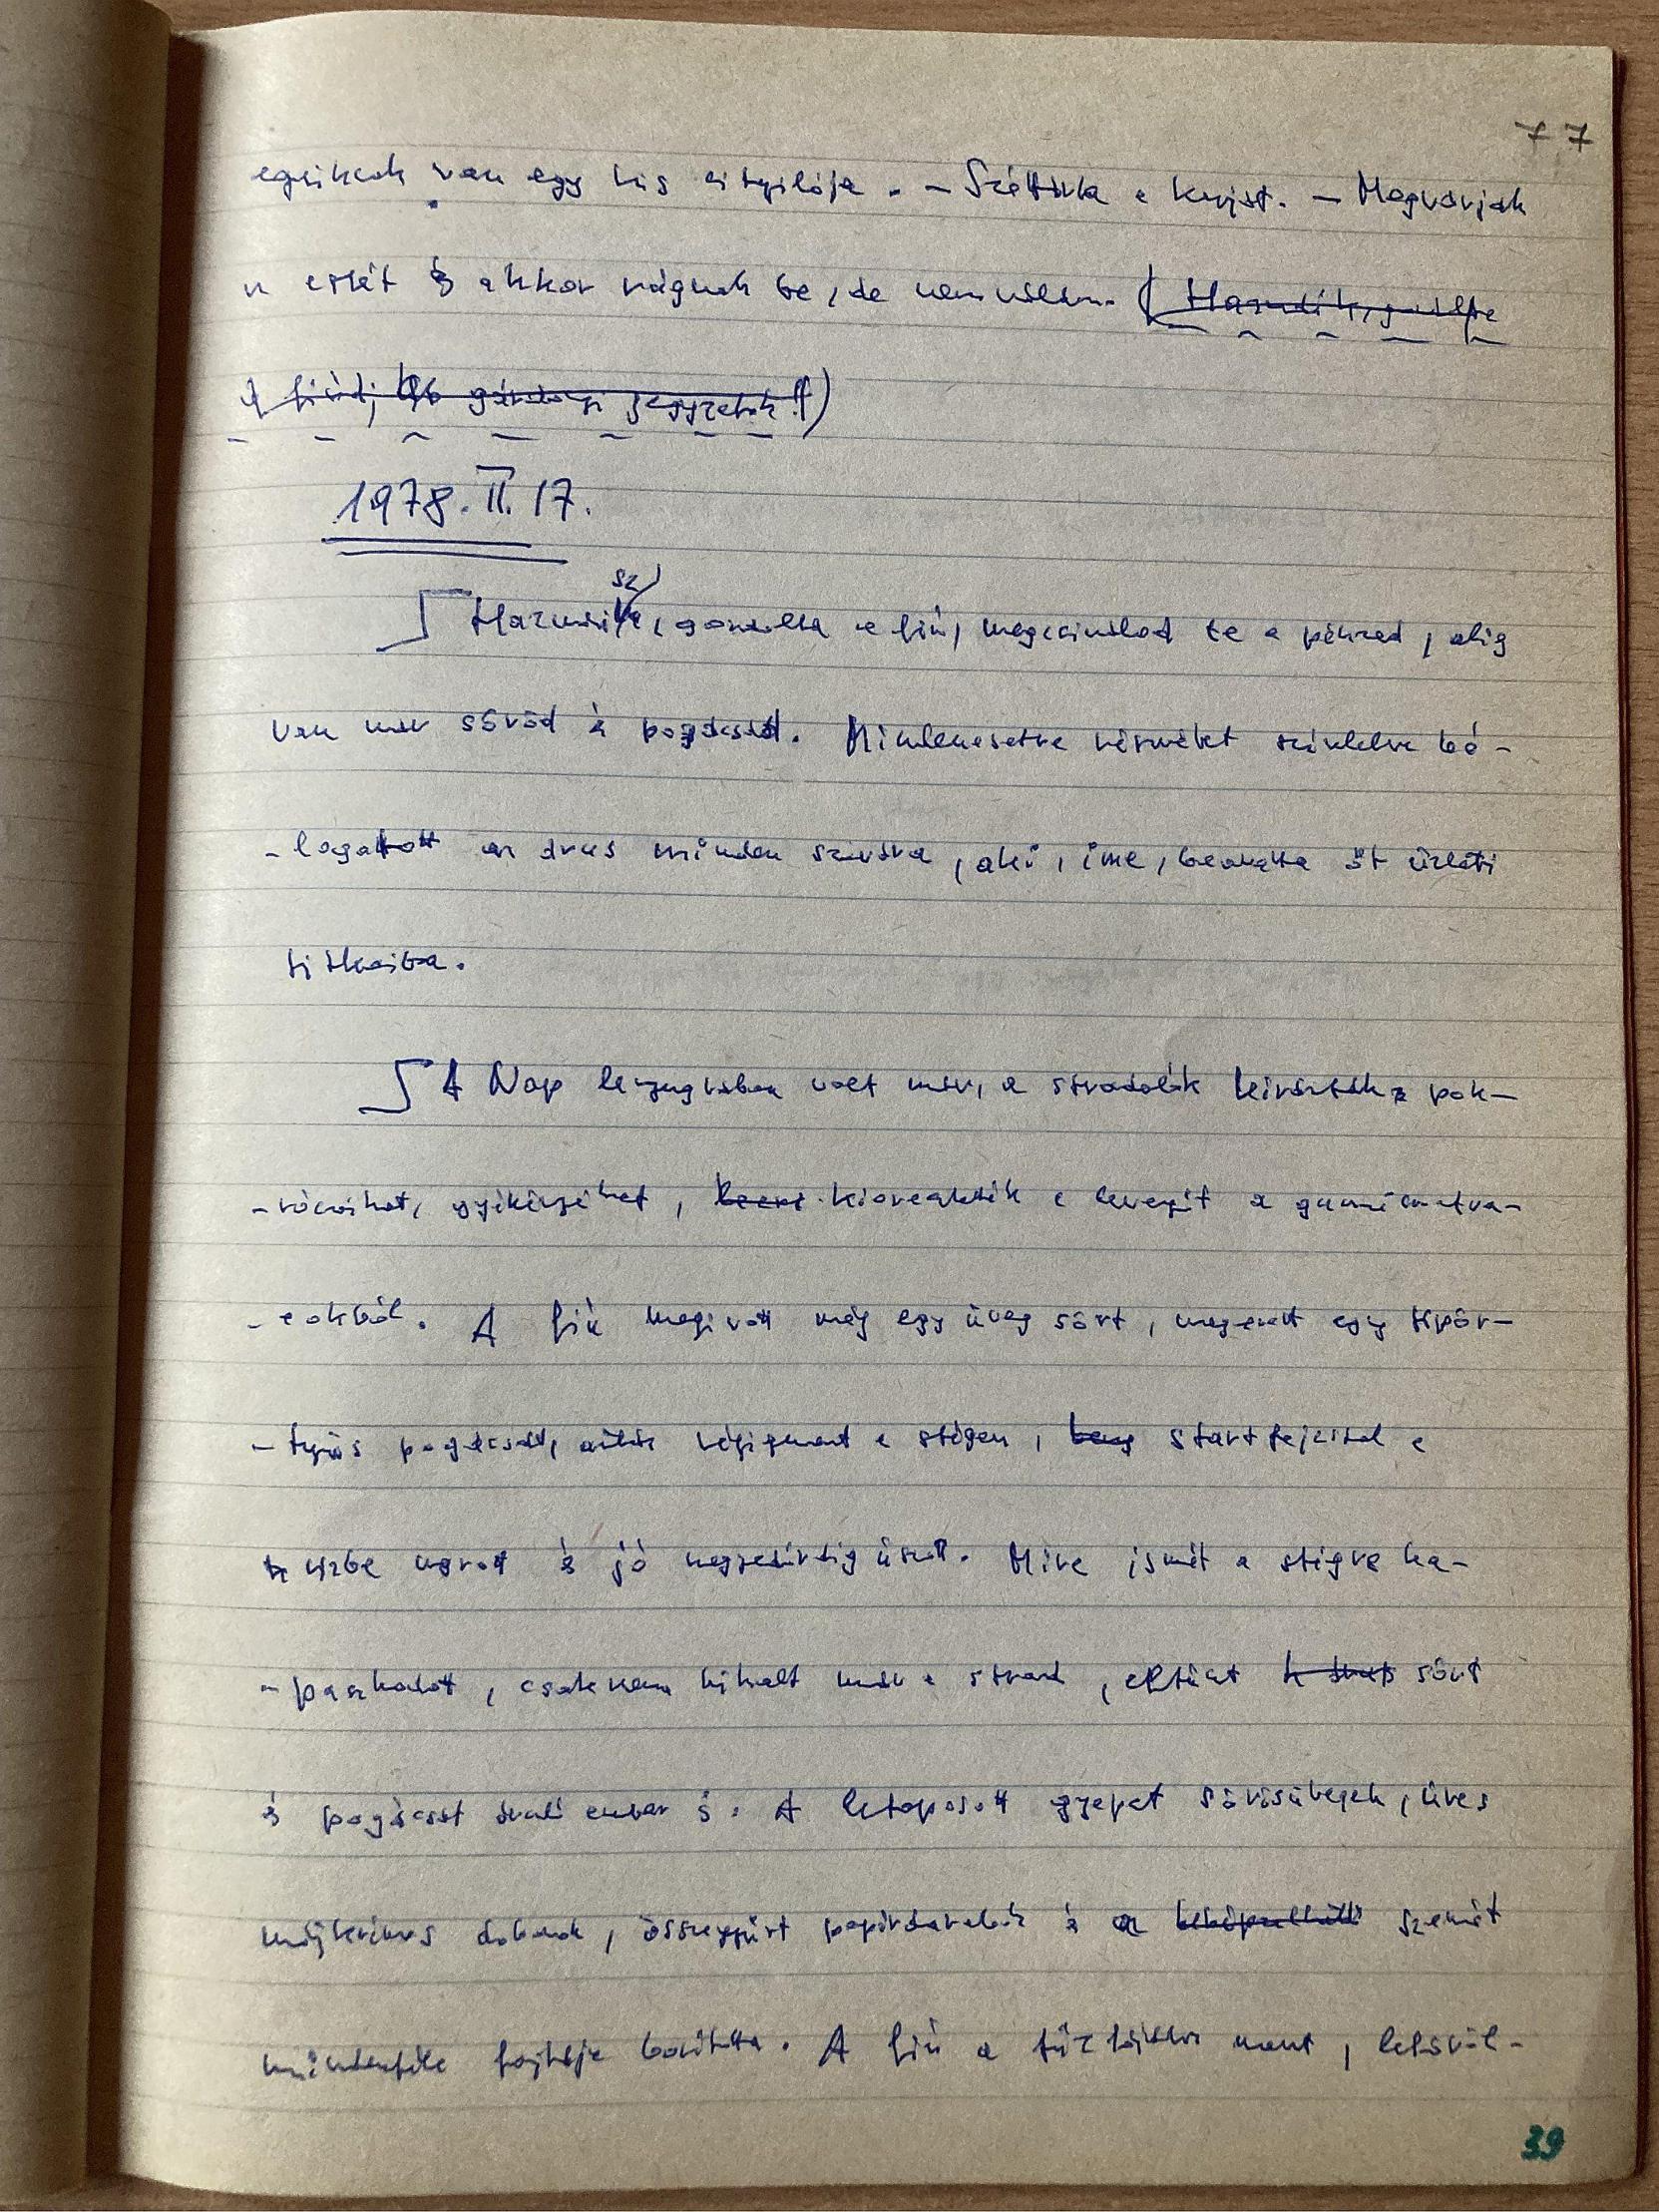 77
egyiknek van egy kis bityilója. – Széttúrta a kupját. – Megvárják
az estét és akkor vágnak be, de nem válim. (Hazudik, gondolta
a fiú,
1978. II. 17.
Hazudsz, gondolta a fiú, megcsinálod te a pénzed, alig
van már söröd és pogácsád. Mindenesetre részvétet színlelve bó-
-logatott az árus minden szavára, aki, íme, beavatta őt üzleti
titkaiba.
A Nap lenyugvóban volt már, a strandolók kirázták a pok-
-rócaikat, gyékényeiket, kieresztették a levegőt a gumimatra-
-cokból. A fiú megivott még egy üveg sört, megevett egy töpör-
-tyűs pogácsát, aztán végigment a stégen, startfejessel a
vízbe ugrott és jó negyedóráig úszott. Mire ismét a stégre ka-
-paszkodott, csaknem kihalt már a strand, eltűnt a sört
és pogácsát áruló ember is. A letaposott gyepet sörösüvegek, üres
májkrémes dobozok, összegyűrt papírdarabok és a szemét
mindenféle fajtája borította. A fiú a
39